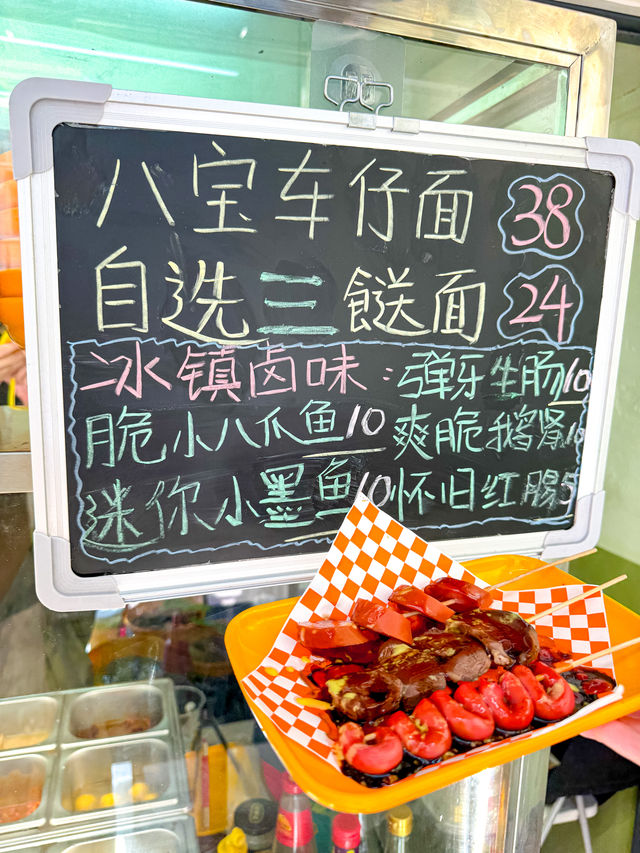 八宝车仔面 38
自选三餸面 24
冰镇卤味：弹牙生肠10
脆小八爪鱼10 爽脆鹅肾10
迷你小墨鱼10 怀旧红腸5